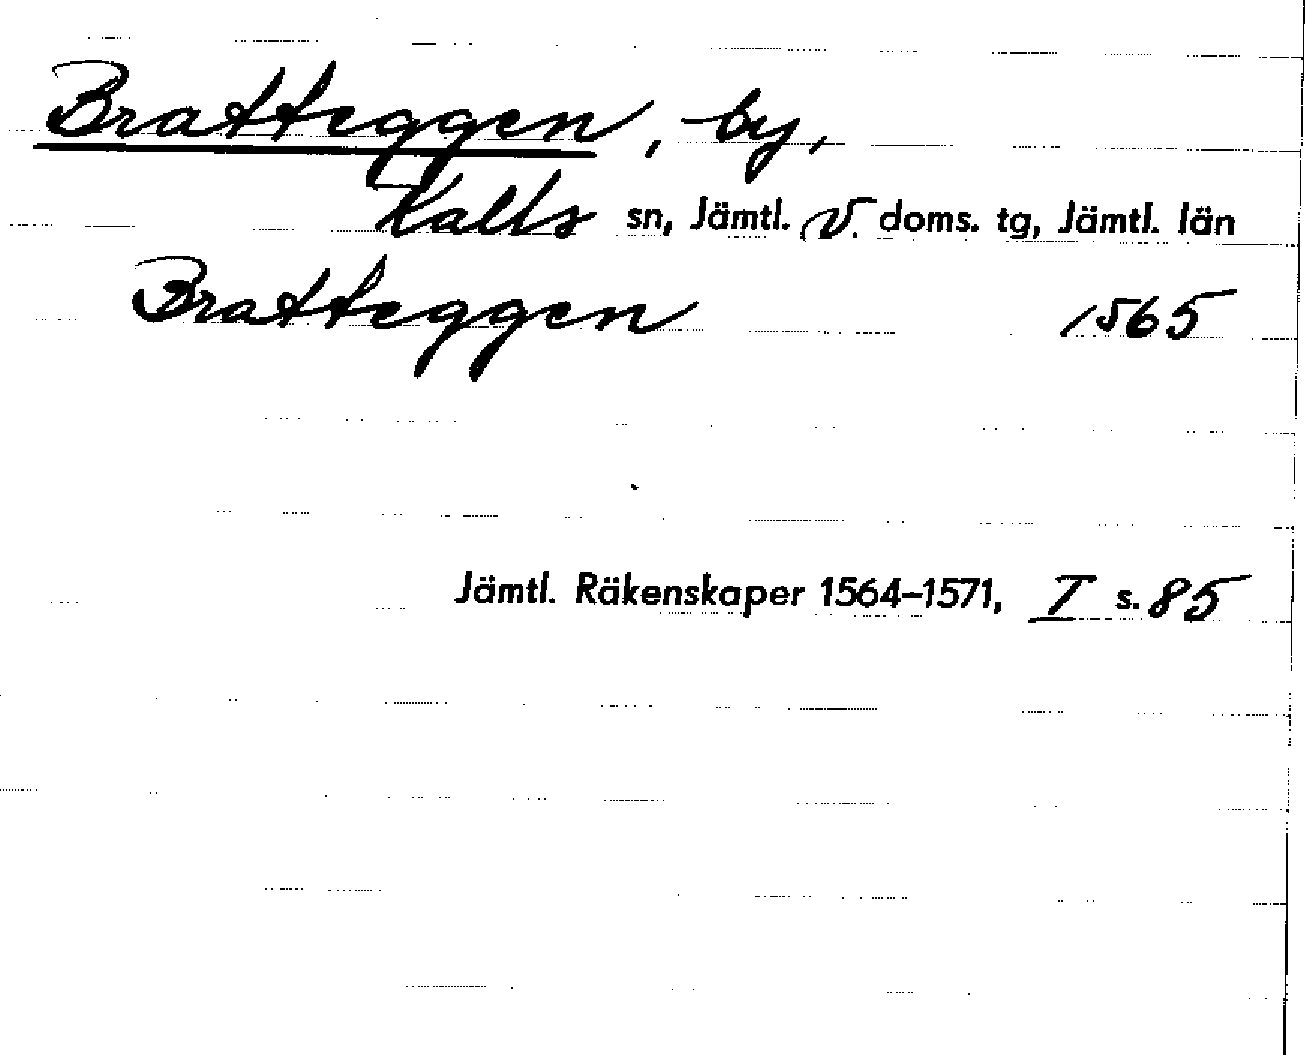 Bratteggen, by,
Kalls sn, Jämtl. V. doms. tg, Jämtl. län
Bratteggen 1565
Jämtl. Räkenskaper 1564–1571, I s. 85